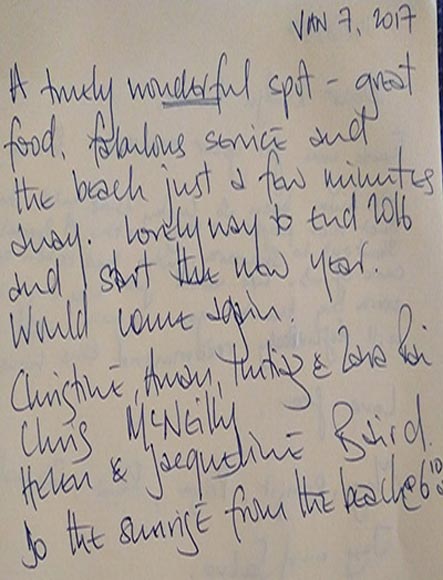 JAN 7, 2017
A truely wonderful spot - great
food, fabulous service and
the beach just a few minutes
away. Lovely way to end 2016
and start the new year.
Would come again.
Christine, & Rai
Chris McNeilly
Helen & Jacqueline Baird.
Do the sunrise from the beach @ 6